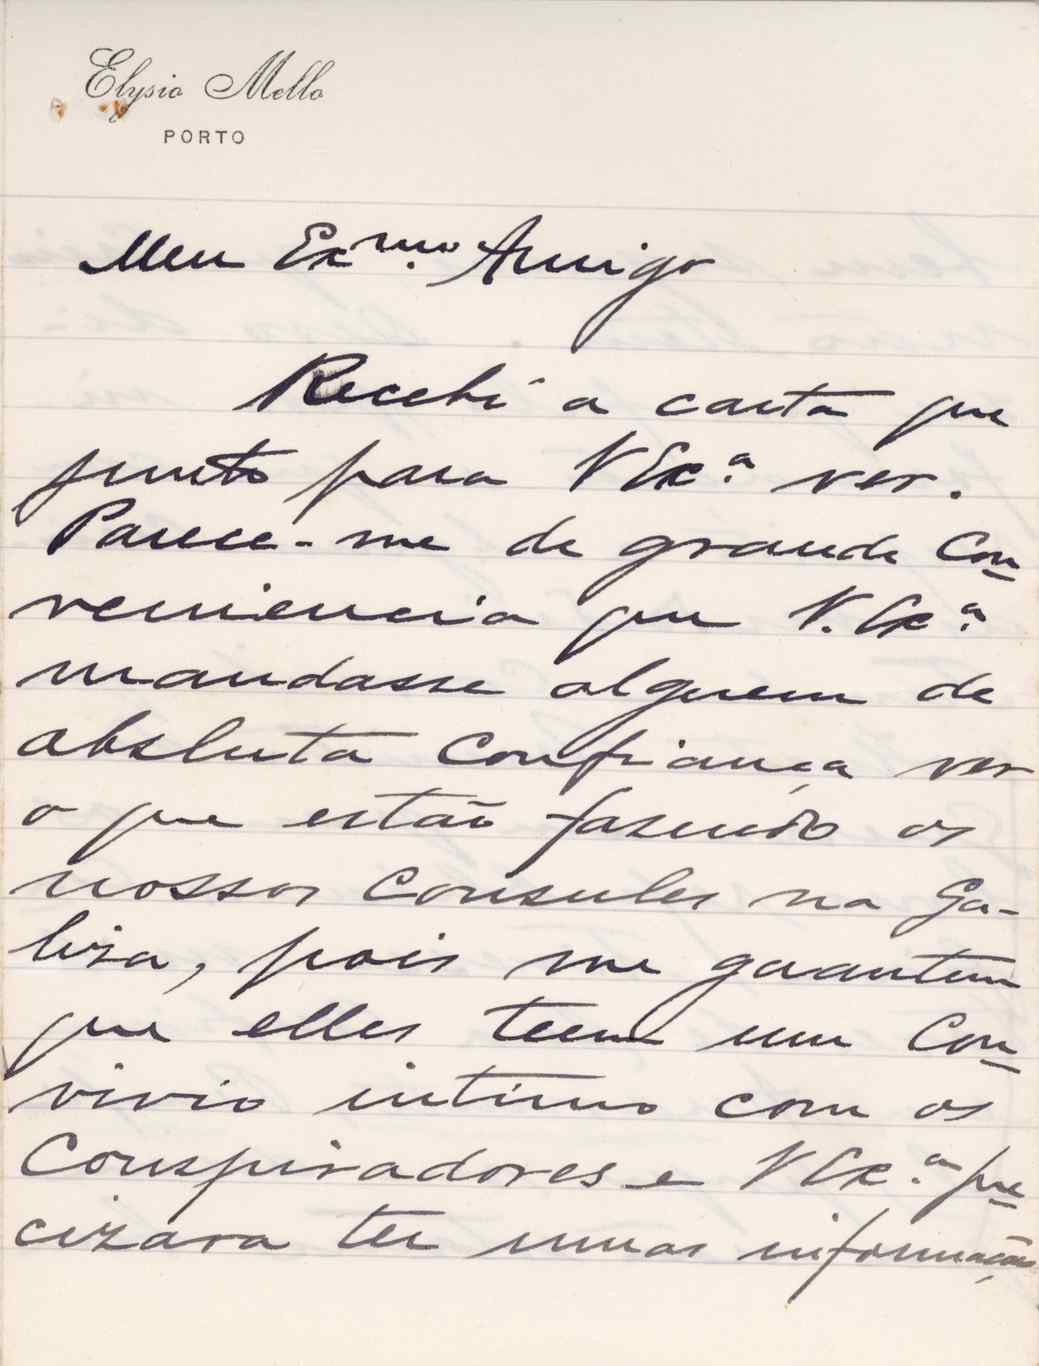 Elysio Mello
PORTO
Meu Exmo. Amigo
Recebi a carta que
junto para V Exª. ver.
Parece-me de grande con-
veniencia que V. Exª.
mandasse alguem de
absluta confiança ver
o que estão fasendo os
nossos consules na Ga-
liza, pois me garantem
que elles teem um con-
vivio intimo com os
Conspiradores e V Exª. pre-
cizara ter umas informações